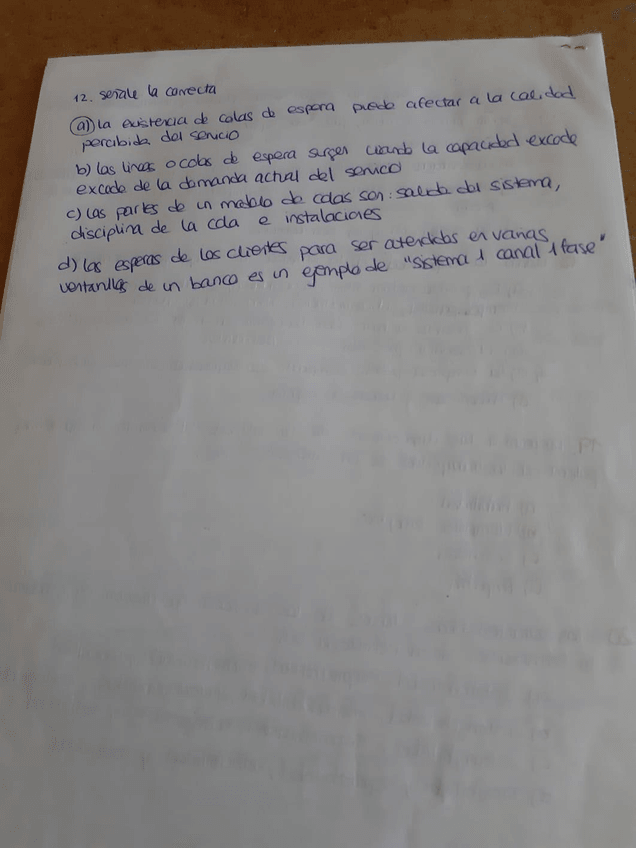 12. señale la correcta
a) la existencia de colas de espera puede afectar a la calidad
percibida del servicio
b) las lineas o colas de espera surgen cuando la capacidad excede
excede de la demanda actual del servicio
c) las partes de un modelo de colas son: salida del sistema,
disciplina de la cola e instalaciones
d) las esperas de los clientes para ser atendidos en varias
ventanillas de un banco es un ejemplo de "sistema 1 canal 1 fase"